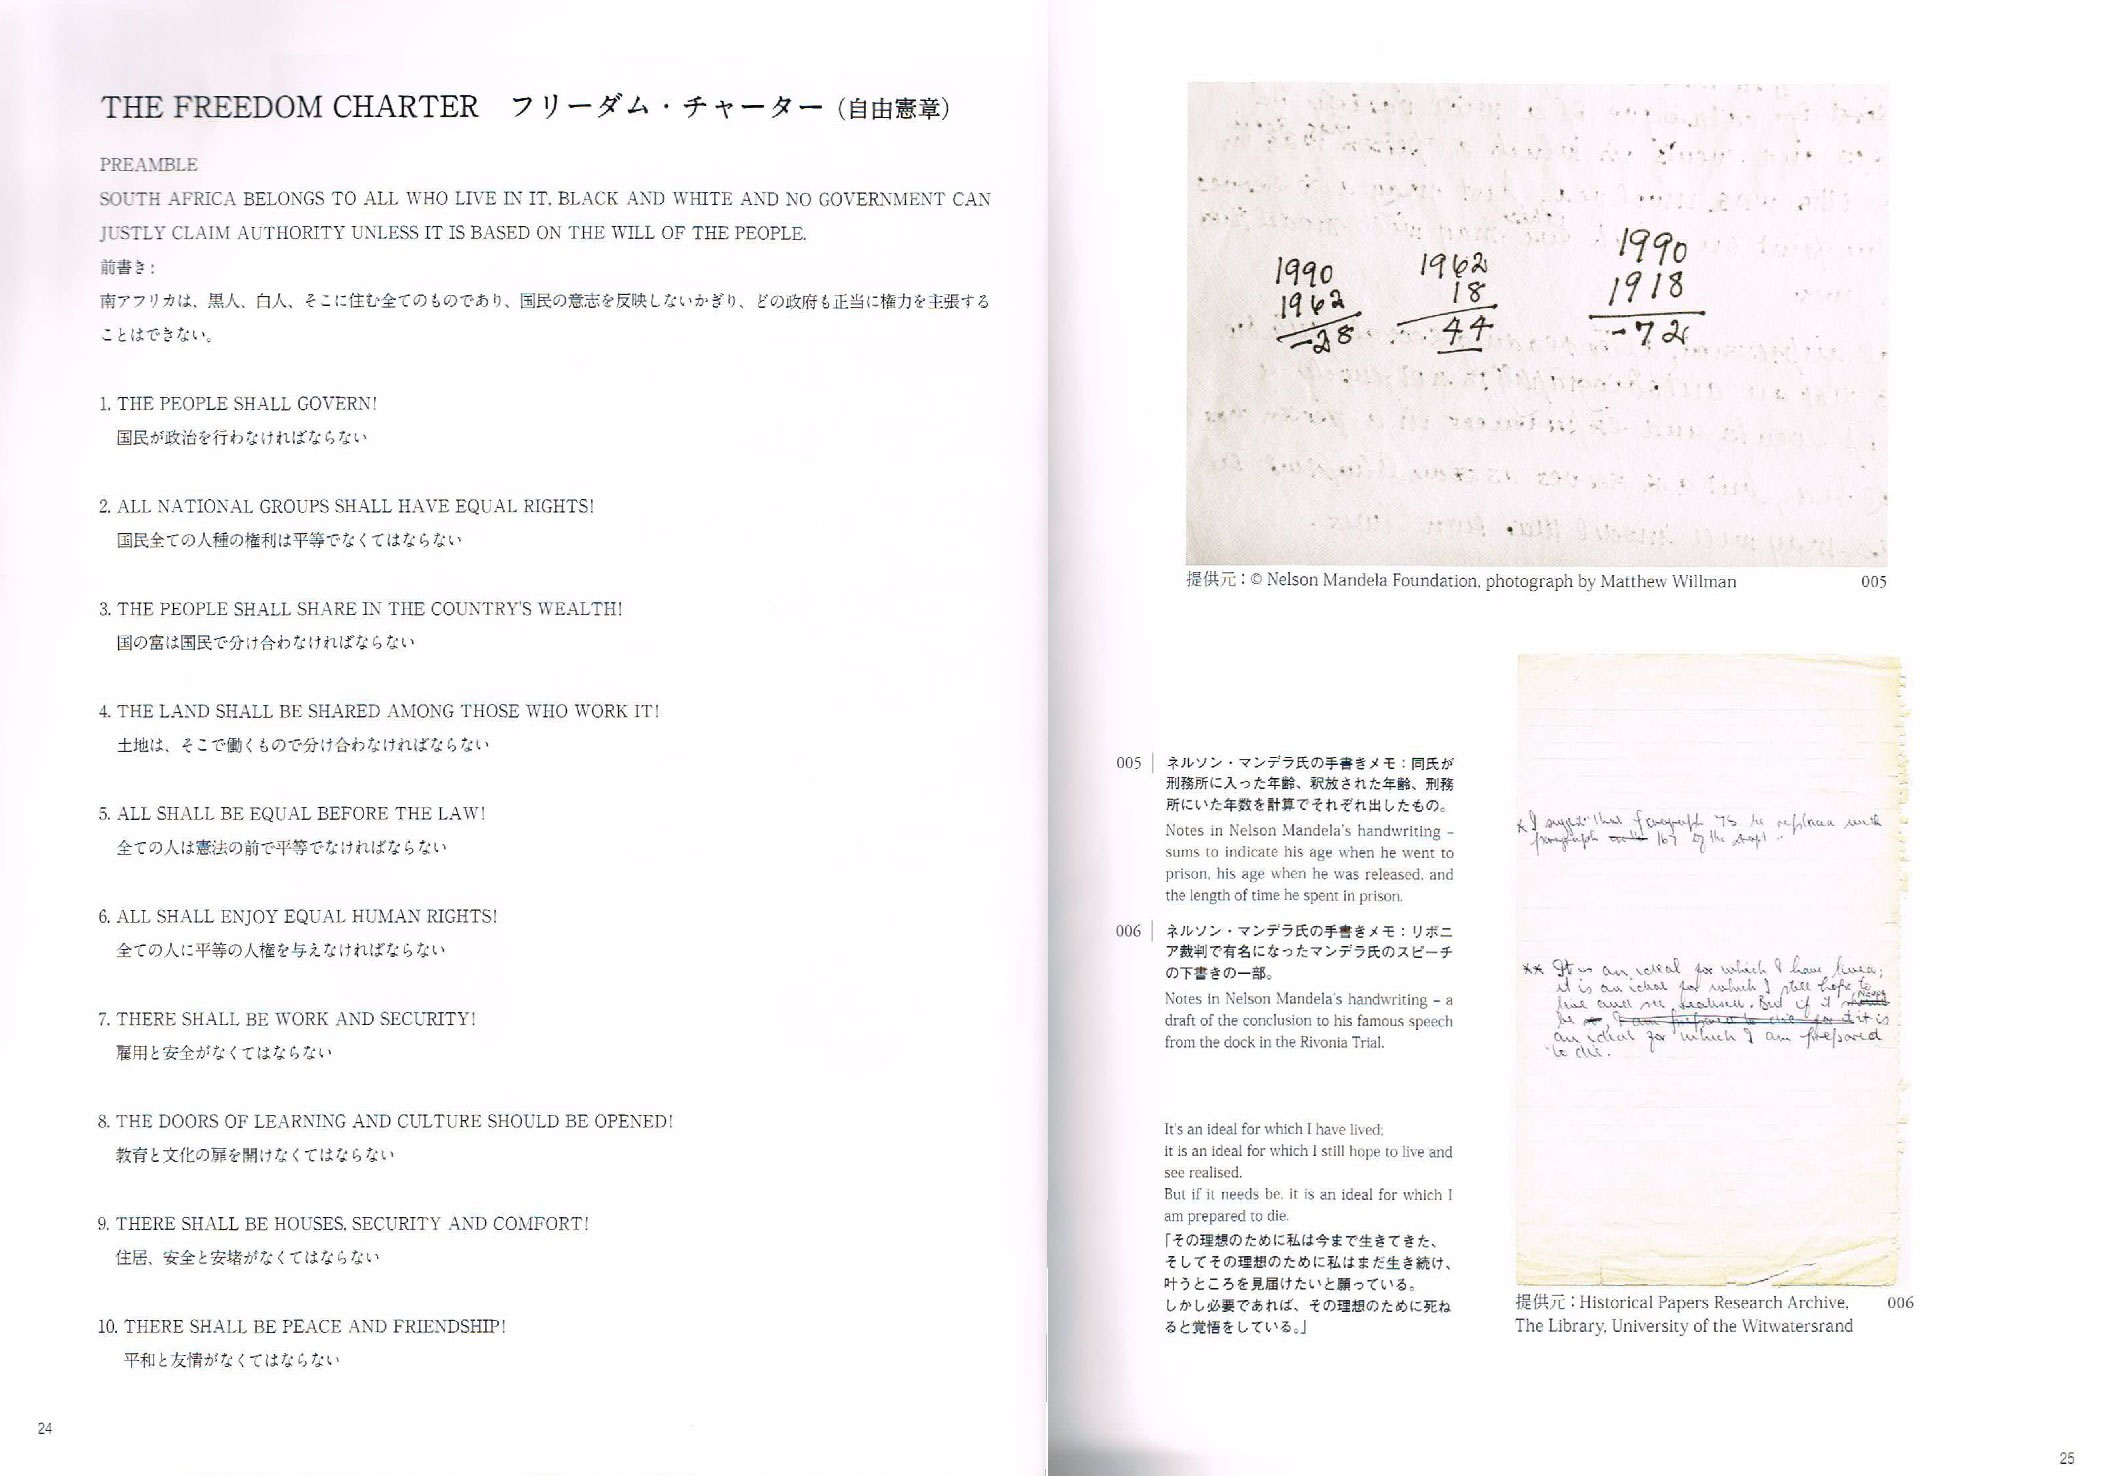 THE FREEDOM CHARTER フリーダム・チャーター（自由憲章）
PREAMBLE
SOUTH AFRICA BELONGS TO ALL WHO LIVE IN IT, BLACK AND WHITE AND NO GOVERNMENT CAN
JUSTLY CLAIM AUTHORITY UNLESS IT IS BASED ON THE WILL OF THE PEOPLE.
前書き：
南アフリカは、黒人、白人、そこに住む全てのものであり、国民の意志を反映しないかぎり、どの政府も正当に権力を主張する
ことはできない。
1. THE PEOPLE SHALL GOVERN!
国民が政治を行わなければならない
2. ALL NATIONAL GROUPS SHALL HAVE EQUAL RIGHTS!
国民全ての人種の権利は平等でなくてはならない
3. THE PEOPLE SHALL SHARE IN THE COUNTRY'S WEALTH!
国の富は国民で分け合わなければならない
4. THE LAND SHALL BE SHARED AMONG THOSE WHO WORK IT!
土地は、そこで働くもので分け合わなければならない
5. ALL SHALL BE EQUAL BEFORE THE LAW!
全ての人は憲法の前で平等でなければならない
6. ALL SHALL ENJOY EQUAL HUMAN RIGHTS!
全ての人に平等の人権を与えなければならない
7. THERE SHALL BE WORK AND SECURITY!
雇用と安全がなくてはならない
8. THE DOORS OF LEARNING AND CULTURE SHOULD BE OPENED!
教育と文化の扉を開けなくてはならない
9. THERE SHALL BE HOUSES, SECURITY AND COMFORT!
住居、安全と安堵がなくてはならない
10. THERE SHALL BE PEACE AND FRIENDSHIP!
平和と友情がなくてはならない
24
1990
1962
-28
1962
18
44
1990
1918
-72
提供元：© Nelson Mandela Foundation, photograph by Matthew Willman 005
005 ネルソン・マンデラ氏の手書きメモ：同氏が
刑務所に入った年齢、釈放された年齢、刑務
所にいた年数を計算でそれぞれ出したもの。
Notes in Nelson Mandela's handwriting –
sums to indicate his age when he went to
prison, his age when he was released, and
the length of time he spent in prison.
006 ネルソン・マンデラ氏の手書きメモ：リボニ
ア裁判で有名になったマンデラ氏のスピーチ
の下書きの一部。
Notes in Nelson Mandela's handwriting – a
draft of the conclusion to his famous speech
from the dock in the Rivonia Trial.
It's an ideal for which I have lived;
it is an ideal for which I still hope to live and
see realised.
But if it needs be, it is an ideal for which I
am prepared to die.
「その理想のために私は今まで生きてきた、
そしてその理想のために私はまだ生き続け、
叶うところを見届けたいと願っている。
しかし必要であれば、その理想のために死ね
ると覚悟をしている。」
* I suggest that paragraph 75 be replaced with
paragraph 167 of the
** It is an ideal for which I have lived;
it is an ideal for which I still hope to
live and see realised. But if it needs
be, I am prepared to die for it it is
an ideal for which I am prepared
to die.
提供元：Historical Papers Research Archive, 006
The Library, University of the Witwatersrand
25